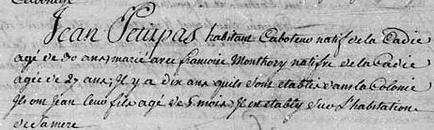 Jean Poupas habitant Caboteur natif de la Cadie
agé de 30 ans marié avec francoise Monthory natifve de la Cadie
agée de 27 ans, Il y a dix ans quils sont etablis dans la Colonie
Ils ont Jean Louis fils agé de 5 mois Il est etably sur L'habitation
de sa mere